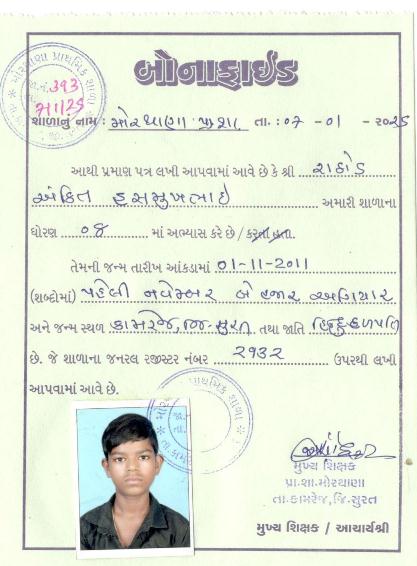 બોનાફાઈડ
જા.નં. 393
શાળાનું નામ : મોરથાણા પ્રા.શા તા. : ૦૭ - ૦૧ - ૨૦૨૬
આથી પ્રમાણ પત્ર લખી આપવામાં આવે છે કે શ્રી રાઠોડ
અંકિત હસમુખભાઈ અમારી શાળાના
ધોરણ ૦૪ માં અભ્યાસ કરે છે / કરતા હતા.
તેમની જન્મ તારીખ આંકડામાં ૦૧-૧૧-૨૦૧૧
(શબ્દોમાં) પહેલી નવેમ્બર બે હજાર અગિયાર
અને જન્મ સ્થળ કામરેજ,જિ-સુરત તથા જાતિ હિંદુ હળપતિ
છે. જે શાળાના જનરલ રજીસ્ટર નંબર ૨૧૩૨ ઉપરથી લખી
આપવામાં આવે છે.
મુખ્ય શિક્ષક
પ્રા.શા.મોરથાણા
તા.કામરેજ,જિ.સુરત
મુખ્ય શિક્ષક / આચાર્યશ્રી